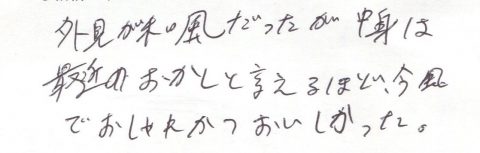 外見が和風だったが中身は
最近のおかしと言えるほど、今風
でおしゃれかつおいしかった。